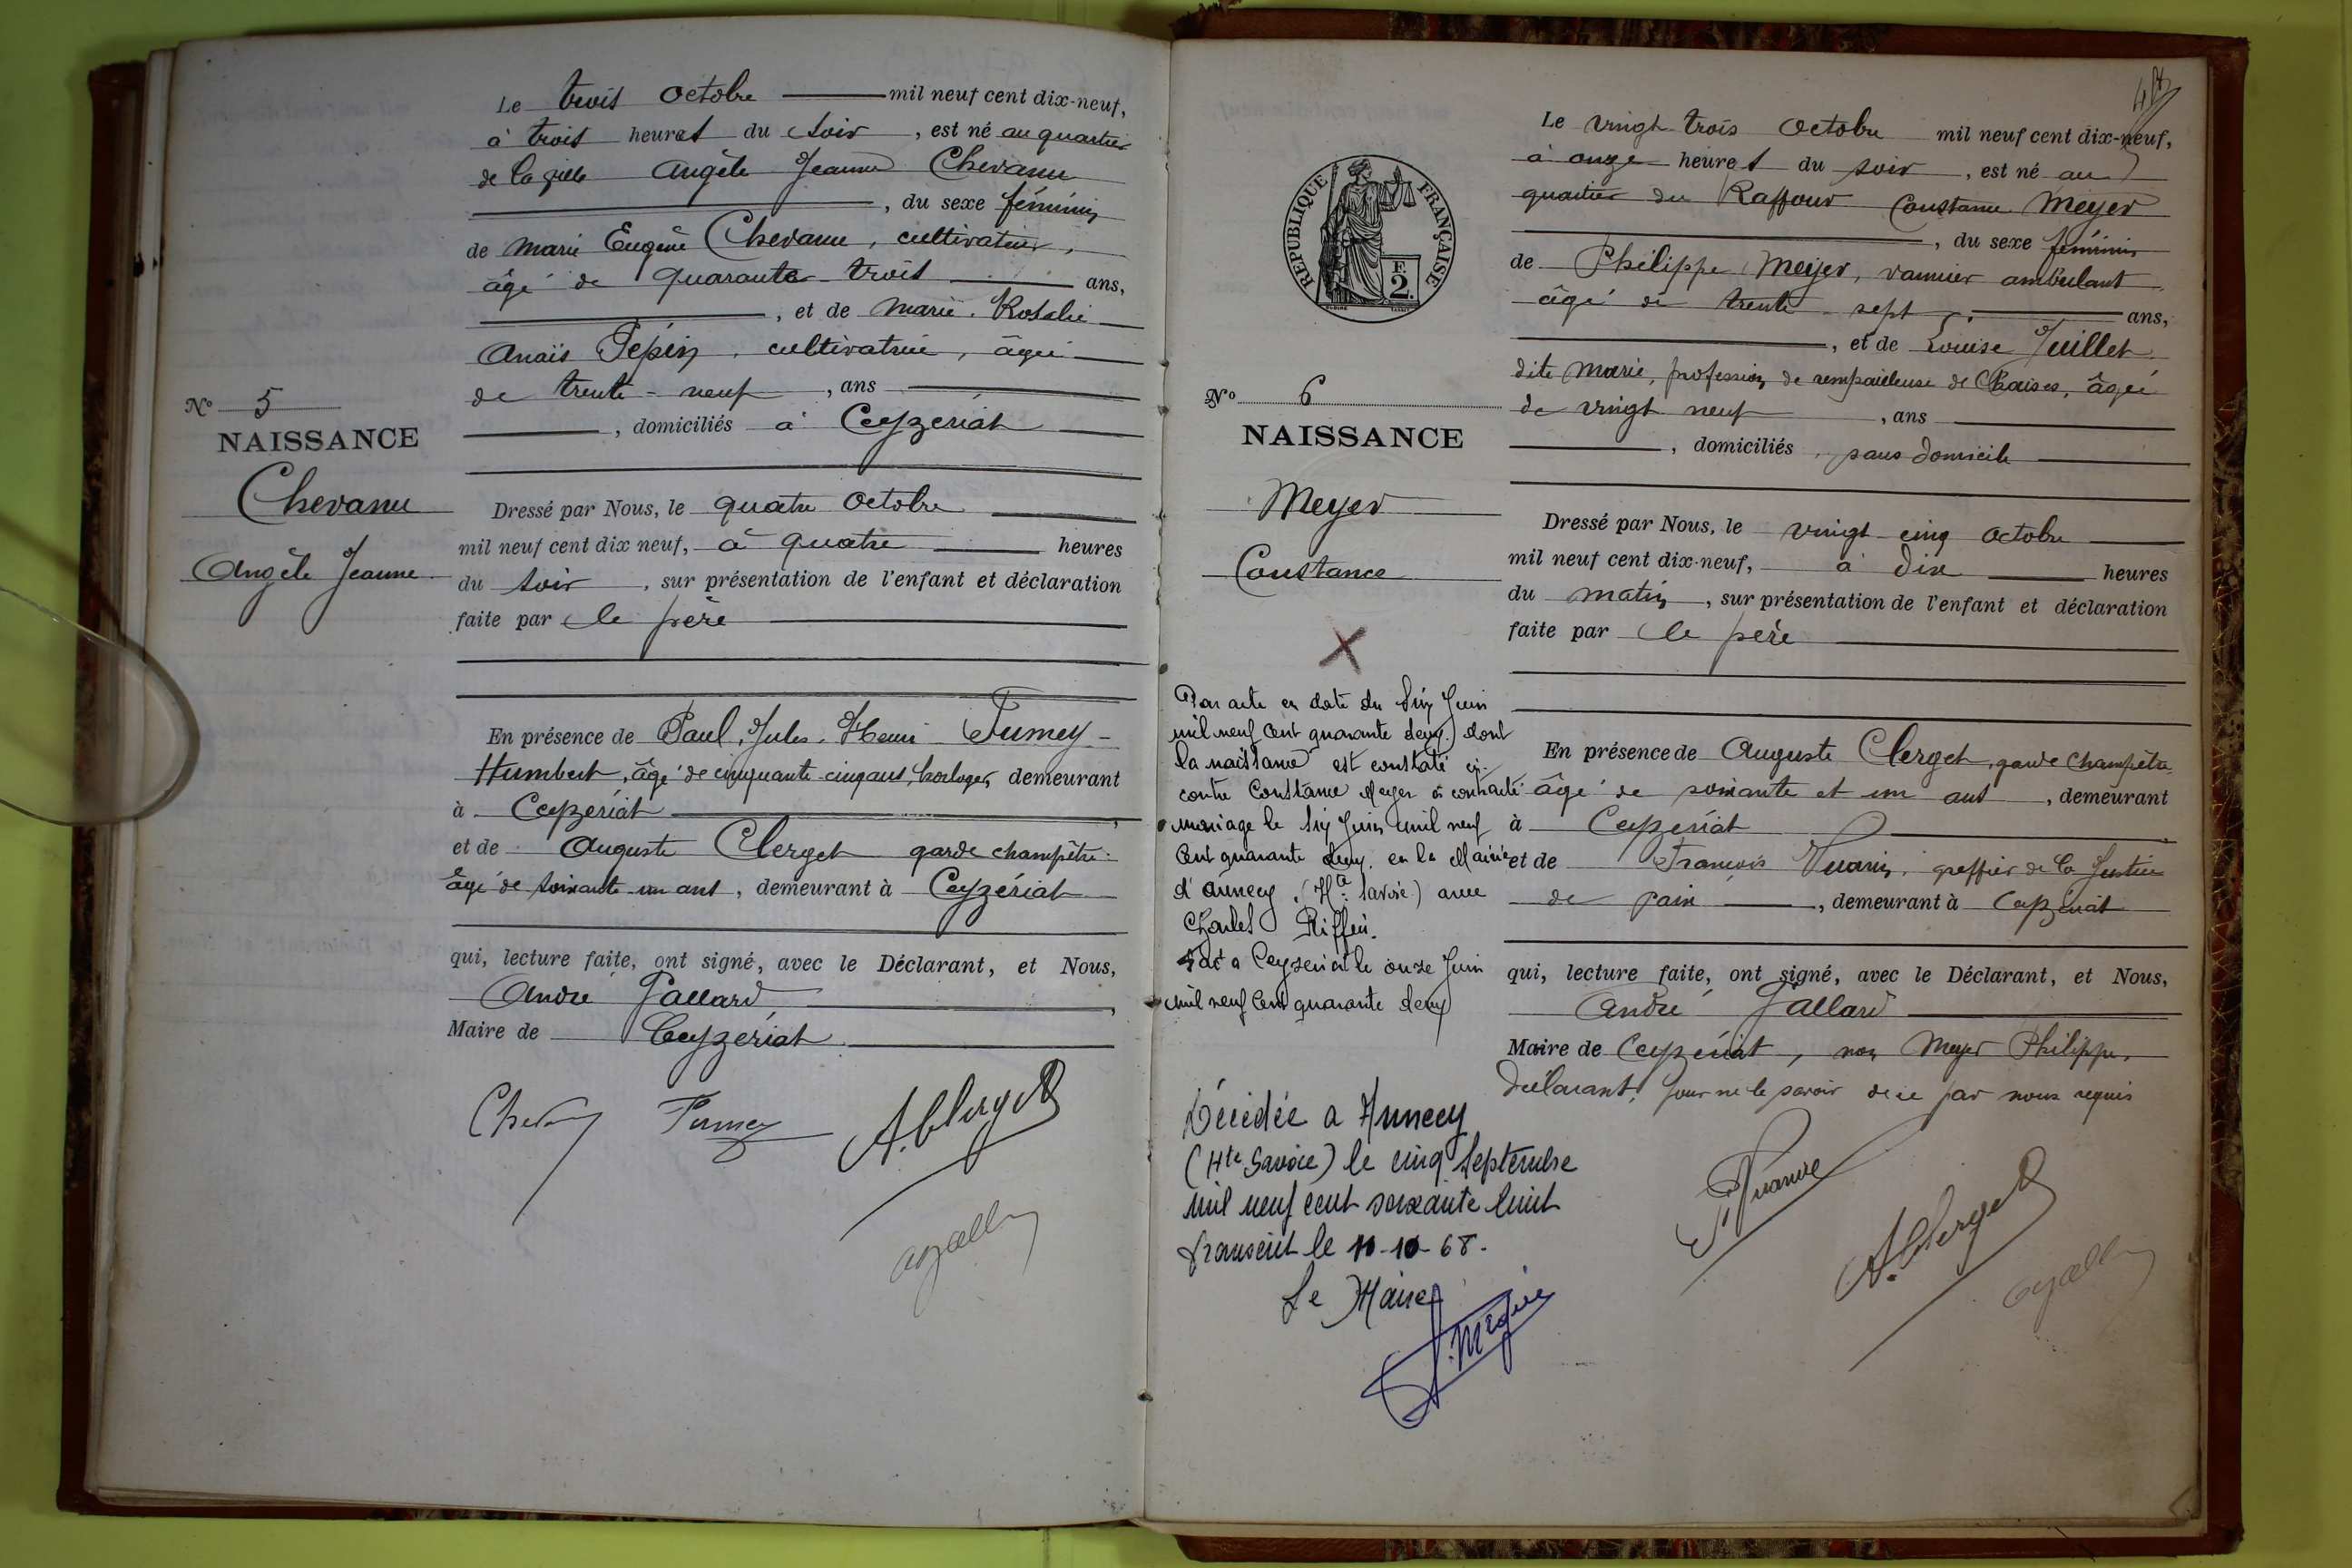 Le trois Octobre mil neuf cent dix-neuf,
à trois heures du soir, est né au quartier
de la ville Angèle Jeanne Chevanne
, du sexe féminin
de Marie Eugène Chevanne, cultivateur,
âgé de quarante-trois ans,
, et de Marie Rosalie
Anaïs Pépin, cultivatrice, âgée
de trente-neuf, ans
, domiciliés à Ceyzériat
Dressé par Nous, le quatre Octobre
mil neuf cent dix neuf, à quatre heures
du soir, sur présentation de l'enfant et déclaration
faite par le père
En présence de Paul, Jules, Henri Tumey-
Humbert, âgé de cinquante-cinq ans, horloger, demeurant
à Ceyzériat,
et de Auguste Clerget garde champêtre
âgé de soixante-un ans, demeurant à Ceyzériat
qui, lecture faite, ont signé, avec le Déclarant, et Nous,
André Gallard
Maire de Ceyzériat
Tumey A. Clerget
No 5
NAISSANCE
Chevanne
Angèle Jeanne
Le vingt-trois Octobre mil neuf cent dix-neuf,
à onze heures du soir, est né au
quartier du Raffour Constance Meyer
, du sexe féminin
de Philippe Meyer, vannier ambulant
âgé de trente-sept ans,
, et de Louise Juillet
dite Marie, profession de rempailleuse de Chaises, âgée
de vingt neuf, ans
, domiciliés sans domicile
Dressé par Nous, le vingt-cinq Octobre
mil neuf cent dix-neuf, à dix heures
du matin, sur présentation de l'enfant et déclaration
faite par le père
En présence de Auguste Clerget, garde champêtre,
âgé de soixante et un ans, demeurant
à Ceyzériat
et de François Vuarin, greffier de la Justice
de paix, demeurant à Ceyzériat
qui, lecture faite, ont signé, avec le Déclarant, et Nous,
André Gallard
Maire de Ceyzériat, non Meyer Philippe,
déclarant, pour ne le savoir de ce par nous requis
A. Clerget
RÉPUBLIQUE FRANÇAISE
F.
2.
No 6
NAISSANCE
Meyer
Constance
Par acte en date du six Juin
mil neuf cent quarante deux) dont
la naissance est constaté ci-
contre Constance Meyer a contracté
mariage le six Juin mil neuf
cent quarante deux, en la Mairie
d'Annecy, (Hte Savoie) avec
Charles Riffen.
Fait a Ceyzeriat le onze Juin
mil neuf cent quarante deux
Décédée a Annecy
(Hte Savoie) le cinq Septembre
mil neuf cent soixante huit
Transcrit le 10-10-68.
Le Maire